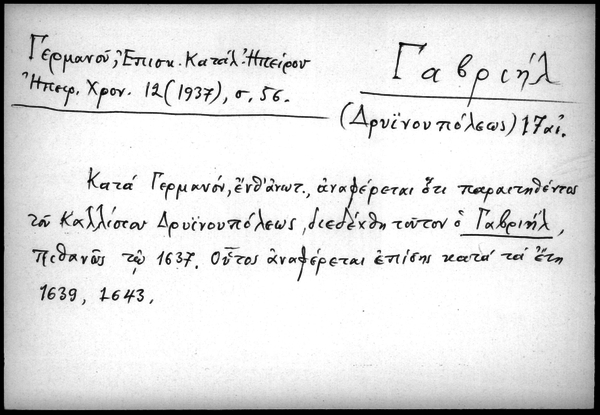 Γερμανοῦ, Ἐπισκ. Κατάλ. Ἠπείρου
Ἠπειρ. Χρον. 12 (1937), σ. 56.
Γαβριήλ
(Δρυϊνουπόλεως) 17 αἰ.
Κατά Γερμανόν, ἔνθ' ἀνωτ., ἀναφέρεται ὅτι παραιτηθέντος
τοῦ Καλλίστου Δρυϊνουπόλεως, διεδέχθη τοῦτον ὁ Γαβριήλ,
πιθανῶς τῷ 1637. Οὗτος ἀναφέρεται ἐπίσης κατά τά ἔτη
1639, 1643,